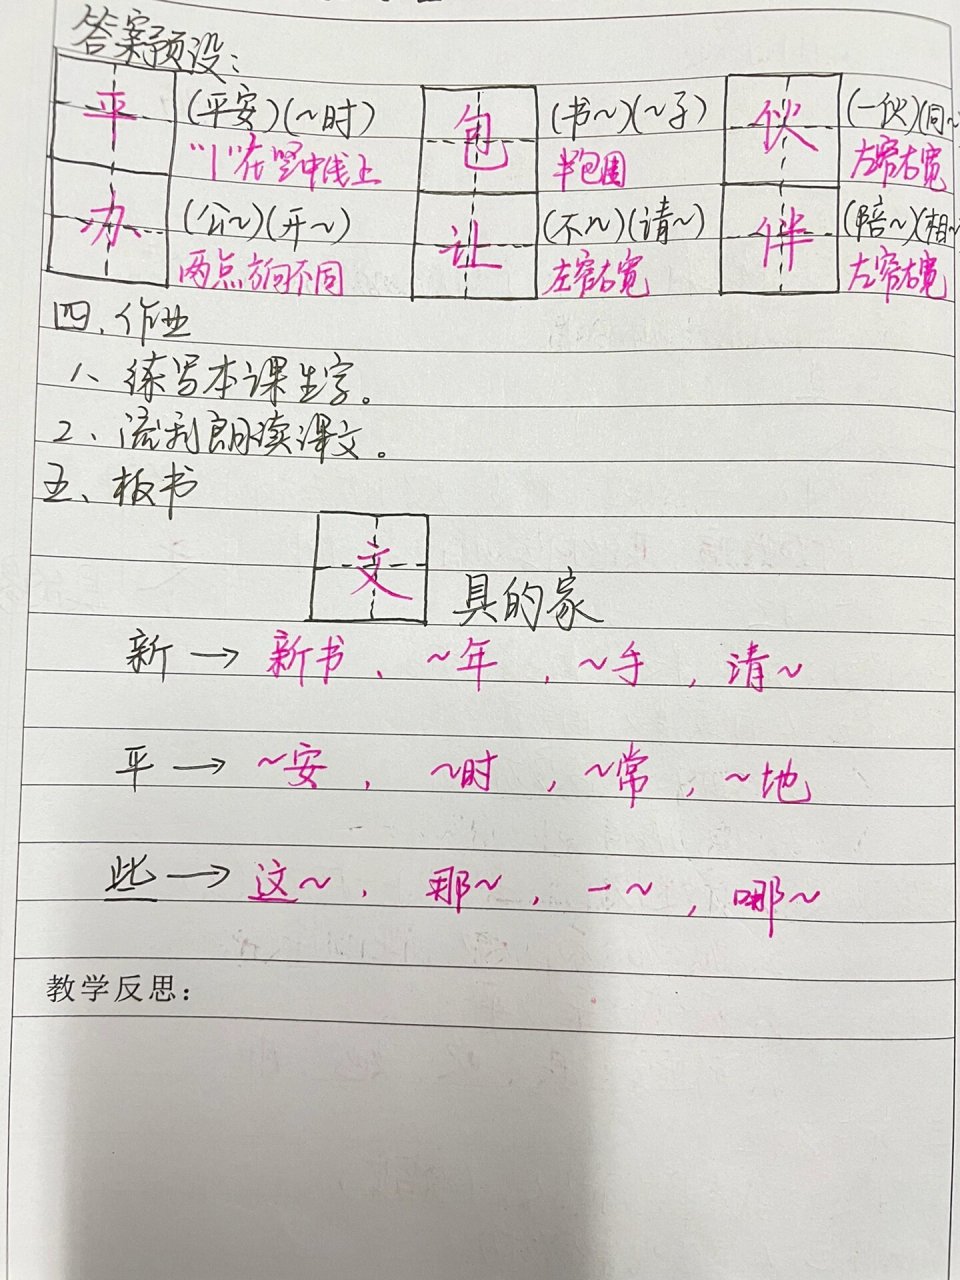 答案预设：
平 (平安)(~时) 包 (书~)(~子) 伙 (一伙)(同~
"丨"在竖中线上 半包围 左窄右宽
办 (公~)(开~) 让 (不~)(请~) 伴 (陪~)(相~
两点方向不同 左窄右宽 左窄右宽
四、作业
1、练写本课生字。
2、流利朗读课文。
五、板书
文具的家
新→新书、~年，~手，清~
平→~安，~时，~常，~地
些→这~，那~，一~，哪~
教学反思：